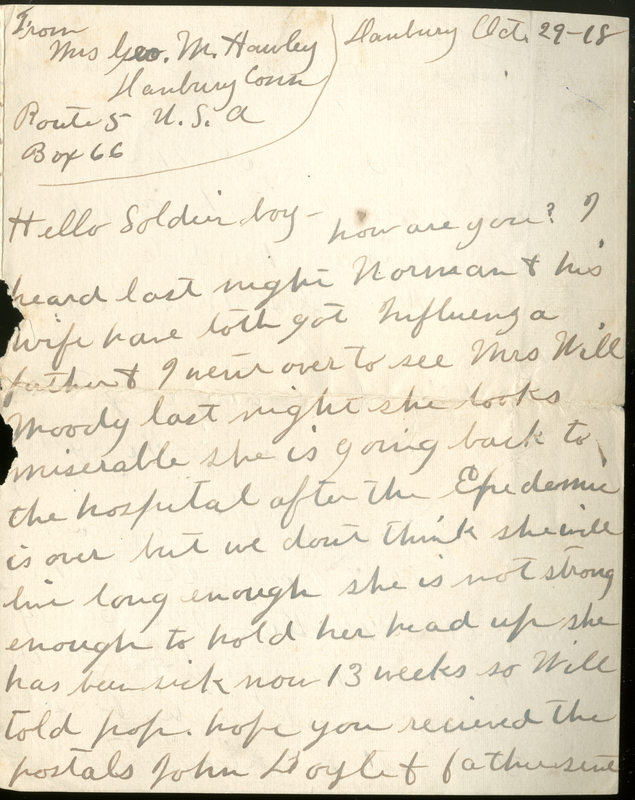 From
Mrs Geo. M. Hawley
Danbury Conn
Route 5 U. S. A
Box 66
Danbury Oct. 29-18
Hello Soldier boy - how are you? I
heard last night Norman & his
wife have both got Influenza
father & I went over to see Mrs Will
Moody last night she looks
miserable she is going back to
the hospital after the Epidemic
is over but we dont think she will
live long enough she is not strong
enough to hold her head up she
has been sick now 13 weeks so Will
told pop. hope you recieved the
postals John Doyle & father sent